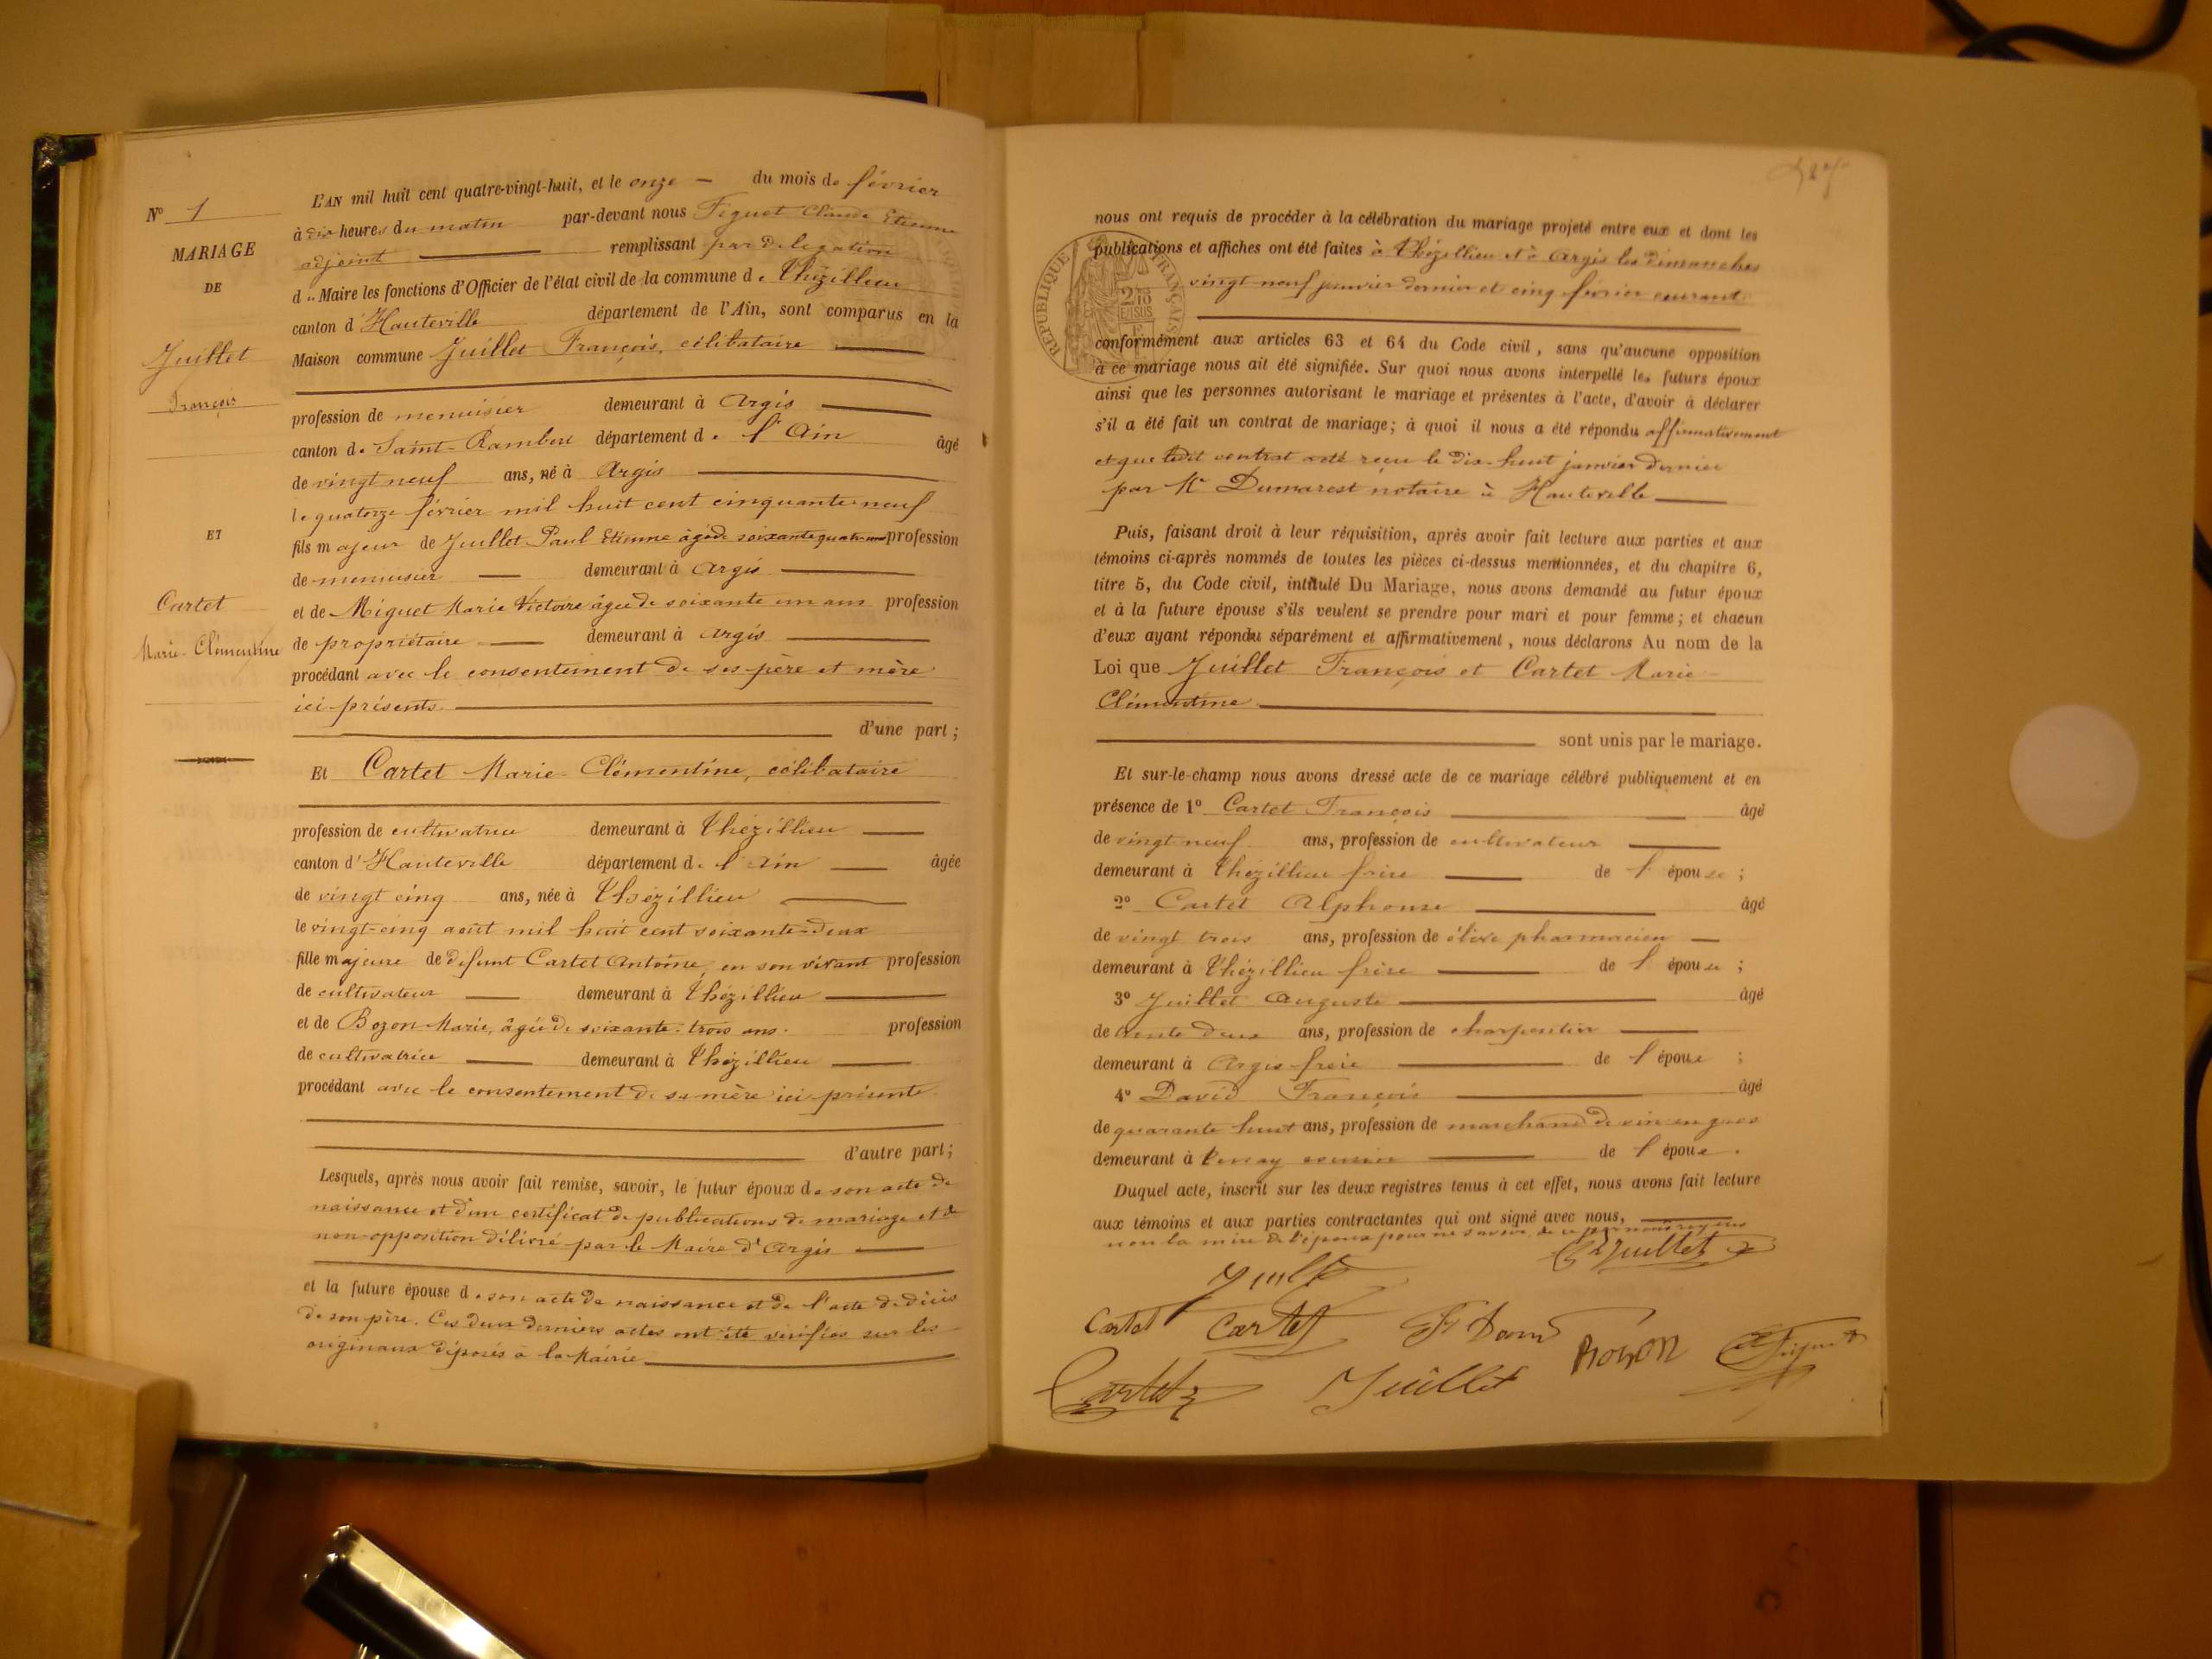 N° 1
MARIAGE
DE
Juillet
François
ET
Cartet
Marie-Clémentine
L'AN mil huit cent quatre-vingt-huit, et le onze — du mois de février
à dix heures du matin par-devant nous Figuet Claude Etienne
adjoint — remplissant par délégation
du Maire les fonctions d'Officier de l'état civil de la commune de Thézillieu
canton d'Hauteville département de l'Ain, sont comparus en la
Maison commune Juillet François, célibataire
profession de menuisier demeurant à Argis
canton de Saint-Rambert département de l'Ain âgé
de vingt neuf ans, né à Argis
le quatorze février mil huit cent cinquante-neuf
fils majeur de Juillet Paul Etienne âgé de soixante quatre ans profession
de menuisier — demeurant à Argis
et de Miguet Marie Victoire âgée de soixante un ans profession
de propriétaire — demeurant à Argis
procédant avec le consentement de ses père et mère
ici présents
d'une part ;
Et Cartet Marie-Clémentine, célibataire
profession de cultivatrice demeurant à Thézillieu
canton d'Hauteville département de l'Ain âgée
de vingt cinq ans, née à Thézillieu
le vingt-cinq août mil huit cent soixante-deux
fille majeure de défunt Cartet Antoine, en son vivant profession
de cultivateur — demeurant à Thézillieu
et de Bozon Marie, âgée de soixante-trois ans. profession
de cultivatrice — demeurant à Thézillieu
procédant avec le consentement de sa mère ici présente
d'autre part ;
Lesquels, après nous avoir fait remise, savoir, le futur époux de son acte de
naissance et d'un certificat de publications de mariage et de
non-opposition délivré par le Maire d'Argis
et la future épouse de son acte de naissance et de l'acte de décès
de son père. Ces deux derniers actes ont été vérifiés sur les
originaux déposés à la Mairie
nous ont requis de procéder à la célébration du mariage projeté entre eux et dont les
publications et affiches ont été faites à Thézillieu et à Argis les dimanches
vingt-neuf janvier dernier et cinq février courant
RÉPUBLIQUE FRANÇAISE
2/10 EN SUS
conformément aux articles 63 et 64 du Code civil, sans qu'aucune opposition
à ce mariage nous ait été signifiée. Sur quoi nous avons interpellé les futurs époux
ainsi que les personnes autorisant le mariage et présentes à l'acte, d'avoir à déclarer
s'il a été fait un contrat de mariage ; à quoi il nous a été répondu affirmativement
et que ledit contrat a été reçu le dix-huit janvier dernier
par Me Dumarest notaire à Hauteville
Puis, faisant droit à leur réquisition, après avoir fait lecture aux parties et aux
témoins ci-après nommés de toutes les pièces ci-dessus mentionnées, et du chapitre 6,
titre 5, du Code civil, intitulé Du Mariage, nous avons demandé au futur époux
et à la future épouse s'ils veulent se prendre pour mari et pour femme ; et chacun
d'eux ayant répondu séparément et affirmativement, nous déclarons Au nom de la
Loi que Juillet François et Cartet Marie-
Clémentine
sont unis par le mariage.
Et sur-le-champ nous avons dressé acte de ce mariage célébré publiquement et en
présence de 1° Cartet François âgé
de vingt neuf ans, profession de cultivateur
demeurant à Thézillieu frère de l'épouse ;
2° Cartet Alphonse âgé
de vingt trois ans, profession de élève pharmacien
demeurant à Thézillieu frère de l'épouse ;
3° Juillet Auguste âgé
de trente deux ans, profession de charpentier
demeurant à Argis frère de l'époux ;
4° David François âgé
de quarante huit ans, profession de marchand de vin en gros
demeurant à cousin de l'époux.
Duquel acte, inscrit sur les deux registres tenus à cet effet, nous avons fait lecture
aux témoins et aux parties contractantes qui ont signé avec nous,
non la mère de l'époux pour ne savoir, de ce par nous requise
Juillet
Juillet
Cartet Cartet F David Bozon Figuet
Cartet Juillet